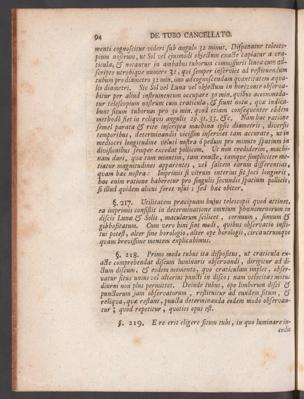 94 DE TUBO CANCELLATO.
menti cognoscitur videri sub angulo 32 minut. Disponatur telescopium
nostrum, ut Sol vel ejusmodi objectum exacte capiatur a craticula,
& notantur in ambabus tuborum commissuris linea cum adscriptis
utrobique numero 32, qui semper inserviet ad restituendum
tubum pro diametro 32 min. imo ad cognoscendam quantitatem
diametri. Sic Sol vel Luna vel objectum in horizonte observabitur
per aliud instrumentum occupare 30 min. quibus accommodatur
telescopium nostrum cum craticula, & fiunt notæ, quæ indicabunt
situm tuborum pro 30 min. quod etiam consequenter eâdem
methodo fiet in reliquis angulis 29. 31. 33. &c. Nam hac ratione
semel parata & rite inscripta machina ipsis diametris, diversis
temporibus, determinandis
mediocri longitudine
divisionibus semper excedat pollicem. Et non crediderim, machinam
dari, qua tam minutim, tam exacte, tamque simpliciter
magnitudines apparentes, vel saltem earum differentias,
quam hac nostra:
hoc enim ratione haberetur pro singulis secundis spatium pollicis,
si illud quidem alicui foret usui; sed hæc obiter.
§. 217. Utilitatem præcipuam hujus telescopii quod attinet,
ea inprimis consistit in determinatione omnium phænomenorum in
discis Lunæ & Solis, macularum scilicet, cornuum, sinuum &
gibbositatum. Cum vero bini sint modi, quibus observatio institui
potest, alter sine horologio, alter ope horologii, circa utrumque
quam brevissime mentem explicabimus.
§. 218. Primo modo tubus ita dispositus, ut craticula exacte
comprehendat discum luminaris observandi, dirigitur ad dictum
discum, & eodem momento, quo craticulam implet, observatur
situs unius vel alterius puncti in disco; nam velocitas motus
diurni non plus permittet. Deinde tubus, ope limborum disci &
punctorum jam observatorum, restituitur ad eundem situm, &
reliqua, quæ restant, puncta determinanda eodem modo observantur;
quod repetitur, quoties opus est.
§. 219. E re erit eligere situm tubi, in quo luminare incedit